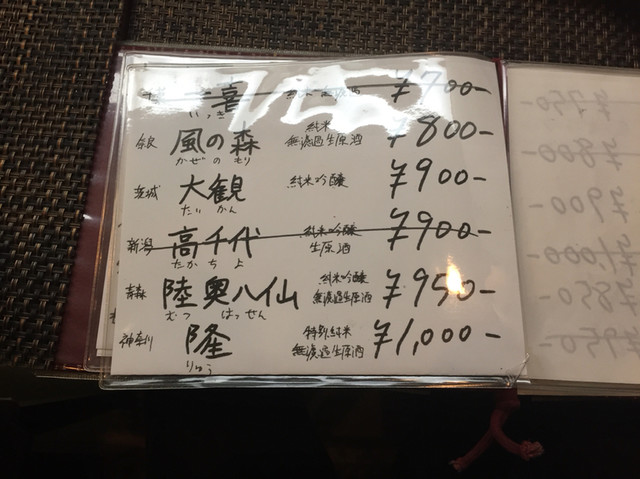 一喜 ¥700-
いっき
奈良 風の森 純米 無濾過生原酒 ¥800-
かぜのもり
茨城 大観 純米吟醸 ¥900-
たいかん
新潟 高千代 純米吟醸 生原酒 ¥900-
たかちよ
青森 陸奥八仙 純米吟醸 無濾過生原酒 ¥950-
むつ はっせん
神奈川 隆 特別純米 無濾過生原酒 ¥1,000-
りゅう